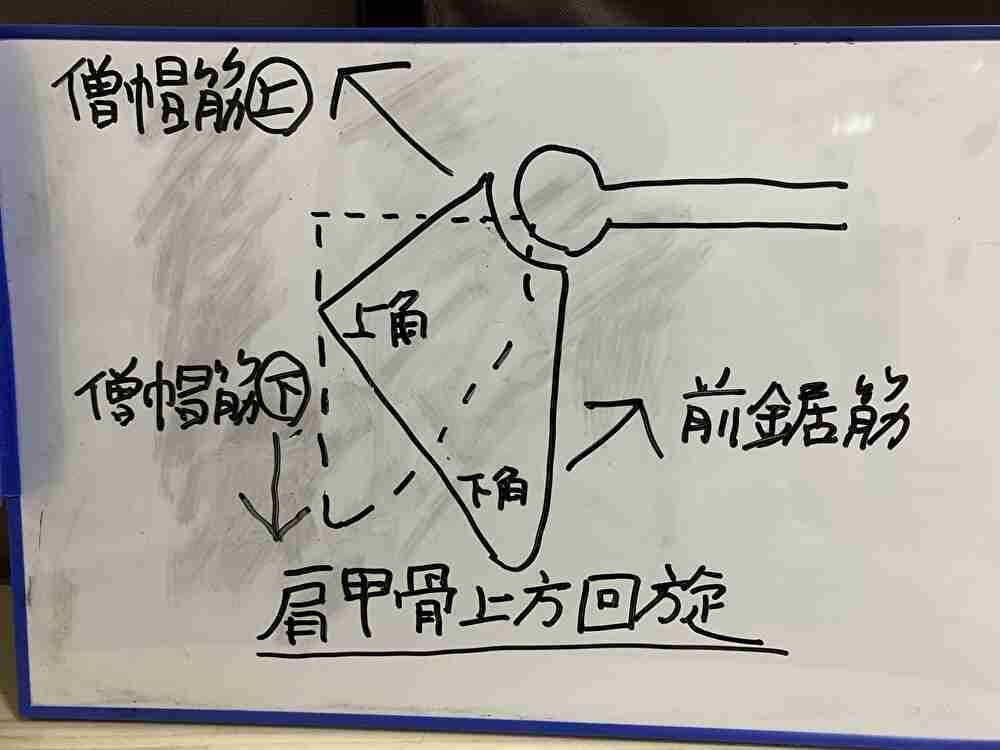 僧帽筋㊤
上角
僧帽筋㊦
前鋸筋
下角
肩甲骨上方回旋